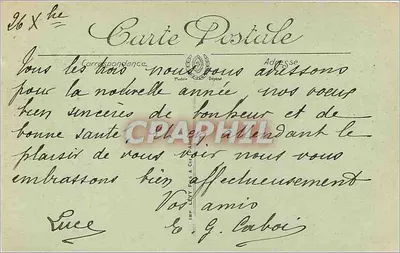 26 Xbre
Carte Postale
Correspondance
Adresse
Tous les trois nous vous adressons
pour la nouvelle année nos voeux
bien sincères de bonheur et de
bonne santé et en attendant le
plaisir de vous voir nous vous
embrassons bien affectueusement
Vos amis
Luce E G. Caboi
CPAPHIL